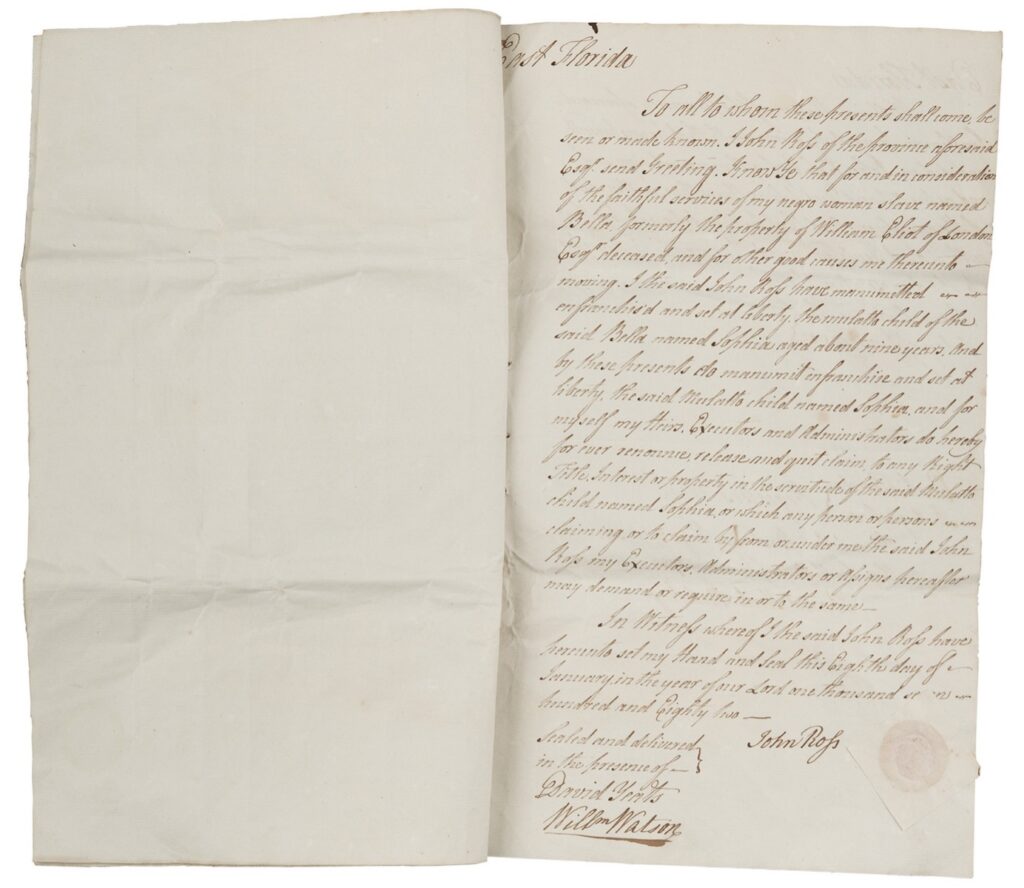 East Florida
To all to whom these presents shall come, be
seen or made known. I John Ross of the province aforesaid
Esqr. send Greeting. Know Ye that for and in consideration
of the faithful services of my negro woman slave named
Bella, formerly the property of William Eliot of London
Esqr. deceased, and for other good causes me thereunto —
moving. I the said John Ross have manumitted
enfranchis'd and set at liberty, the mulatto child of the
said Bella, named Sophia aged about nine years, And
by these presents do manumit enfranchise and set at
liberty, the said Mulatto child named Sophia, and for
myself my Heirs, Executors and Administrators do hereby
for ever renounce, release and quit claim, to any Right
Title, Interest or property in the servitude of the said Mulatto
child named Sophia, or which any person or persons
claiming, or to claim by, from or under me the said John
Ross my Executors, Administrators or Assigns hereafter
may demand or require, in or to the same —
In Witness whereof I the said John Ross have
hereunto set my Hand and Seal this Eighth day of —
January, in the year of our Lord one thousand se n
hundred and Eighty two —
Sealed and delivered
in the presence of —
John Ross
David Yeats
Willm Watson